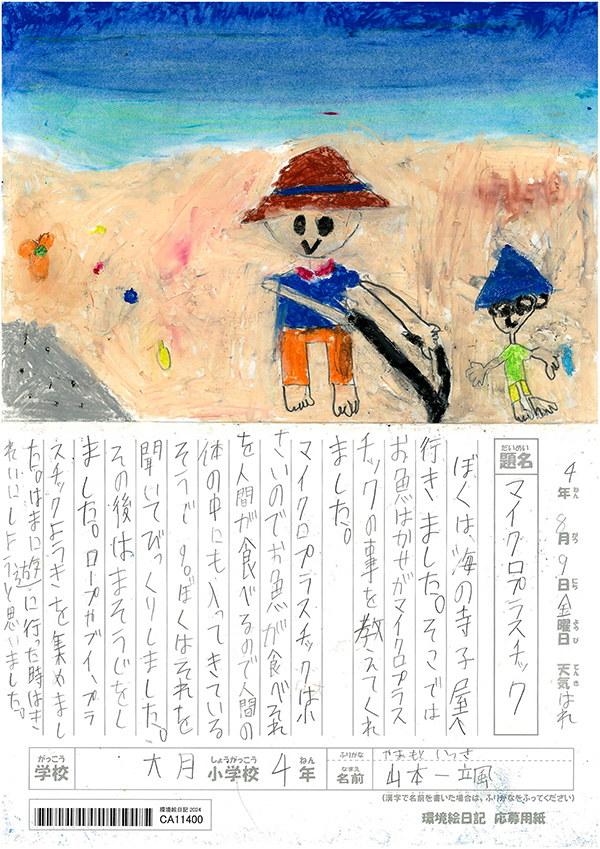 4年8月9日金曜日 天気はれ
ねん がつ にち ようび てんき
だいめい
題名
マイクロプラスチック
ぼくは、海の寺子屋へ
行きました。そこでは
お魚はかせがマイクロプラス
チックの事を教えてくれ
ました。
マイクロプラスチックは小
さいのでお魚が食べそれ
を人間が食べるので人間の
体の中にも入ってきている
そうです。ぼくはそれを
聞いてびっくりしました。
その後はまそうじをし
ました。ロープやブイ、プラ
スチックようきを集めまし
た。はまに遊びに行った時はき
れいにしようと思いました。
がっこう
学校
大月
しょうがっこう
小学校
4年
ねん
ふりがな
やまもと いっさ
なまえ
名前
山本一颯
(漢字で名前を書いた場合は、ふりがなをふってください)
環境絵日記 2024
CA11400
環境絵日記 応募用紙